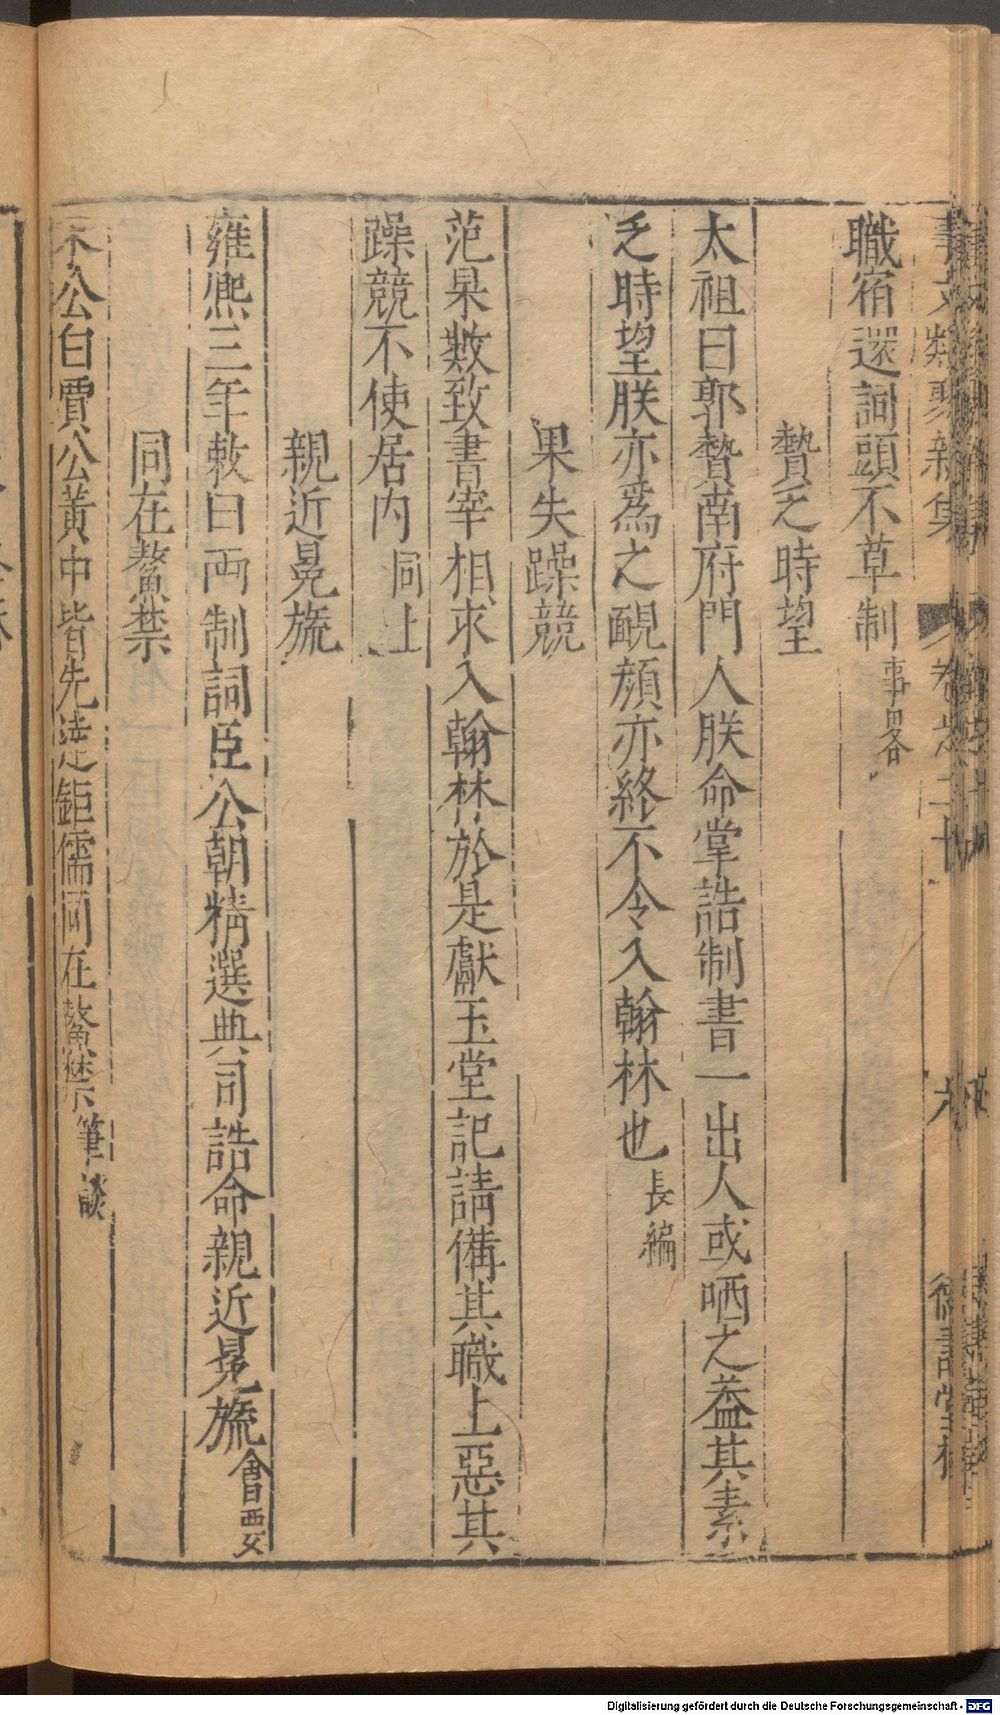 職宿還詞頭不草制事畧
贄乏時望
太祖曰郭贄南府門人朕命掌誥制書一出人或哂之葢其素
乏時望朕亦爲之靦顔亦終不令入翰林也長編
果失躁競
范杲數致書宰相求入翰林於是獻玉堂記請備其職上惡其
躁競不使居内同上
親近冕旒
雍熙三年敕曰両制詞臣公朝精選典司誥命親近冕旒會要
同在鰲禁
公白賈公黃中皆先達鉅儒同在鰲禁筆談
Digitalisierung gefördert durch die Deutsche Forschungsgemeinschaft - DFG